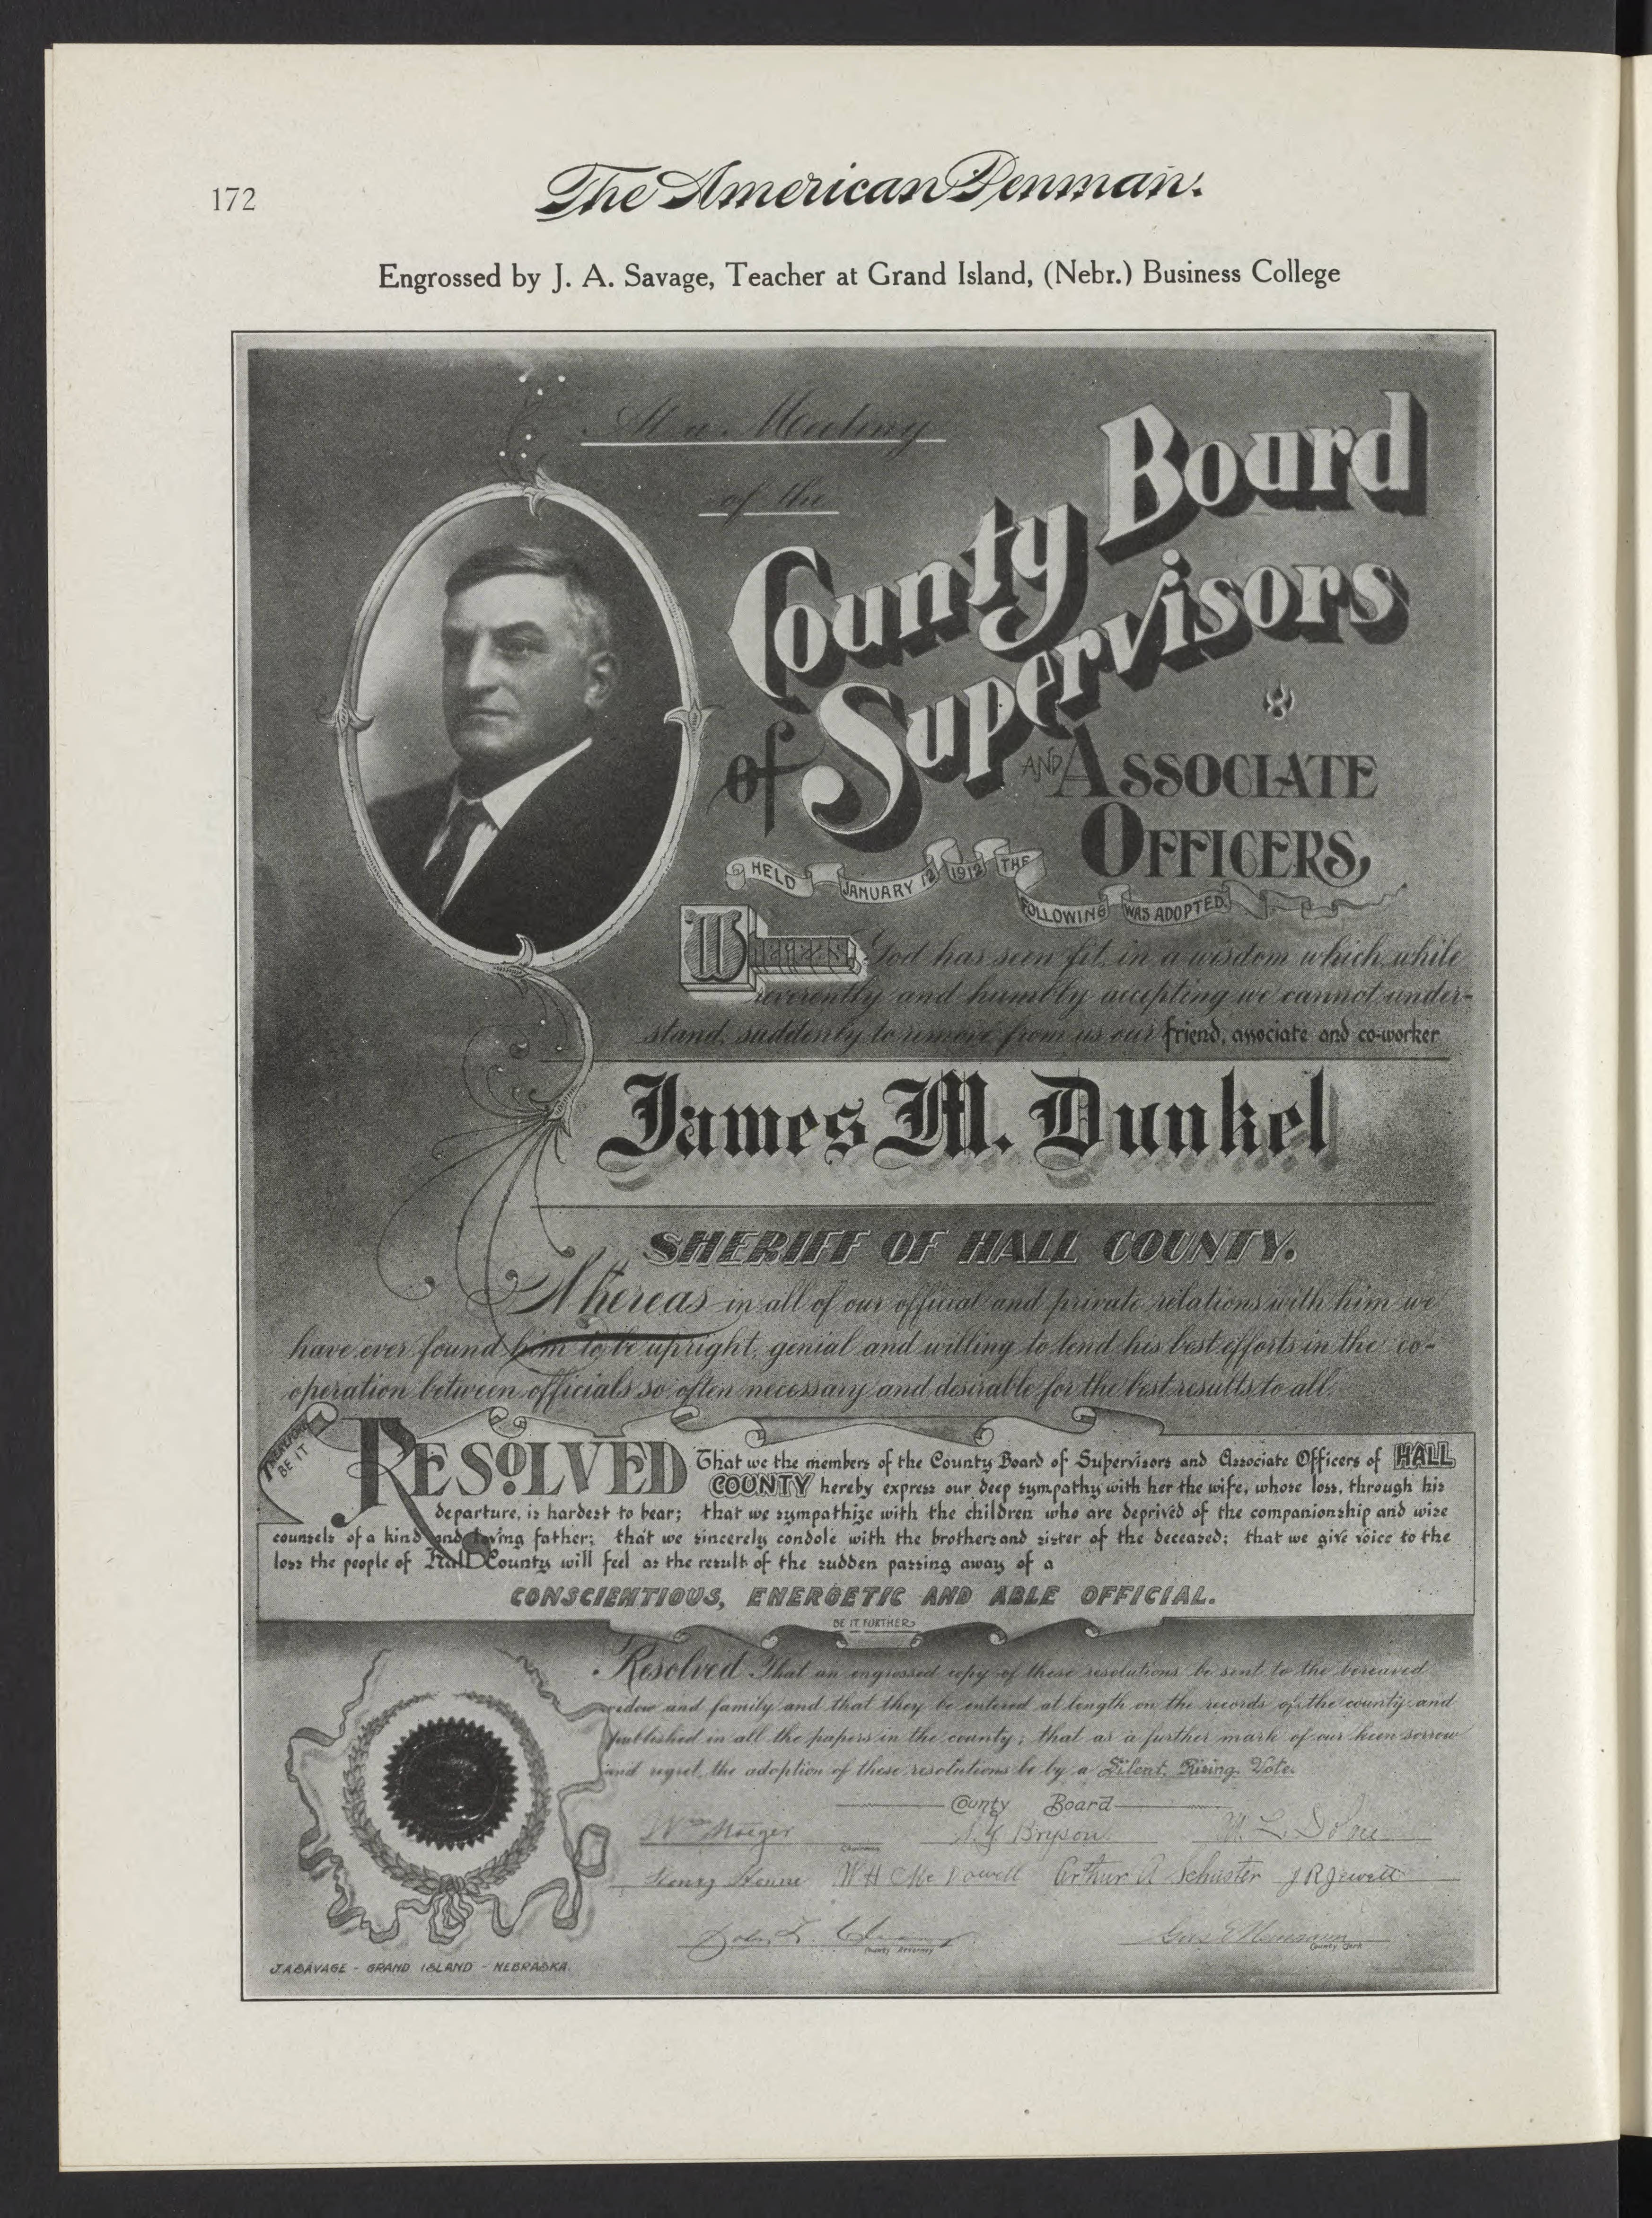 172
The American Penman.
Engrossed by J. A. Savage, Teacher at Grand Island, (Nebr.) Business College
At a Meeting
of the
County Board
of Supervisors
AND ASSOCIATE
OFFICERS,
HELD JANUARY 12 1912 THE
FOLLOWING WAS ADOPTED.
Whereas, God has seen fit, in a wisdom which, while
reverently and humbly accepting we cannot under-
stand, suddenly to remove from us our friend, associate and co-worker
James M. Dunkel
SHERIFF OF HALL COUNTY.
Whereas in all of our official and private relations with him we
have ever found him to be upright, genial and willing to lend his best efforts in the co-
operation between officials so often necessary and desirable for the best results to all.
THEREFORE
BE IT
RESOLVED That we the members of the County Board of Supervisors and Associate Officers of HALL
COUNTY hereby express our deep sympathy with her the wife, whose loss, through his
departure, is hardest to bear; that we sympathize with the children who are deprived of the companionship and wise
counsels of a kind and loving father; that we sincerely condole with the brothers and sister of the deceased; that we give voice to the
loss the people of Hall County will feel as the result of the sudden passing away of a
CONSCIENTIOUS, ENERGETIC AND ABLE OFFICIAL.
BE IT FURTHER
Resolved That an engrossed copy of these resolutions be sent to the bereaved
widow and family and that they be entered at length on the records of the county and
published in all the papers in the county; that as a further mark of our keen sorrow
and regret, the adoption of these resolutions be by a Silent, Rising Vote.
County Board
Bryson
Chairman
Henry W H McDowell Arthur A Schuster J R Jewett
County Attorney
County Clerk
J.A.SAVAGE - GRAND ISLAND - NEBRASKA.